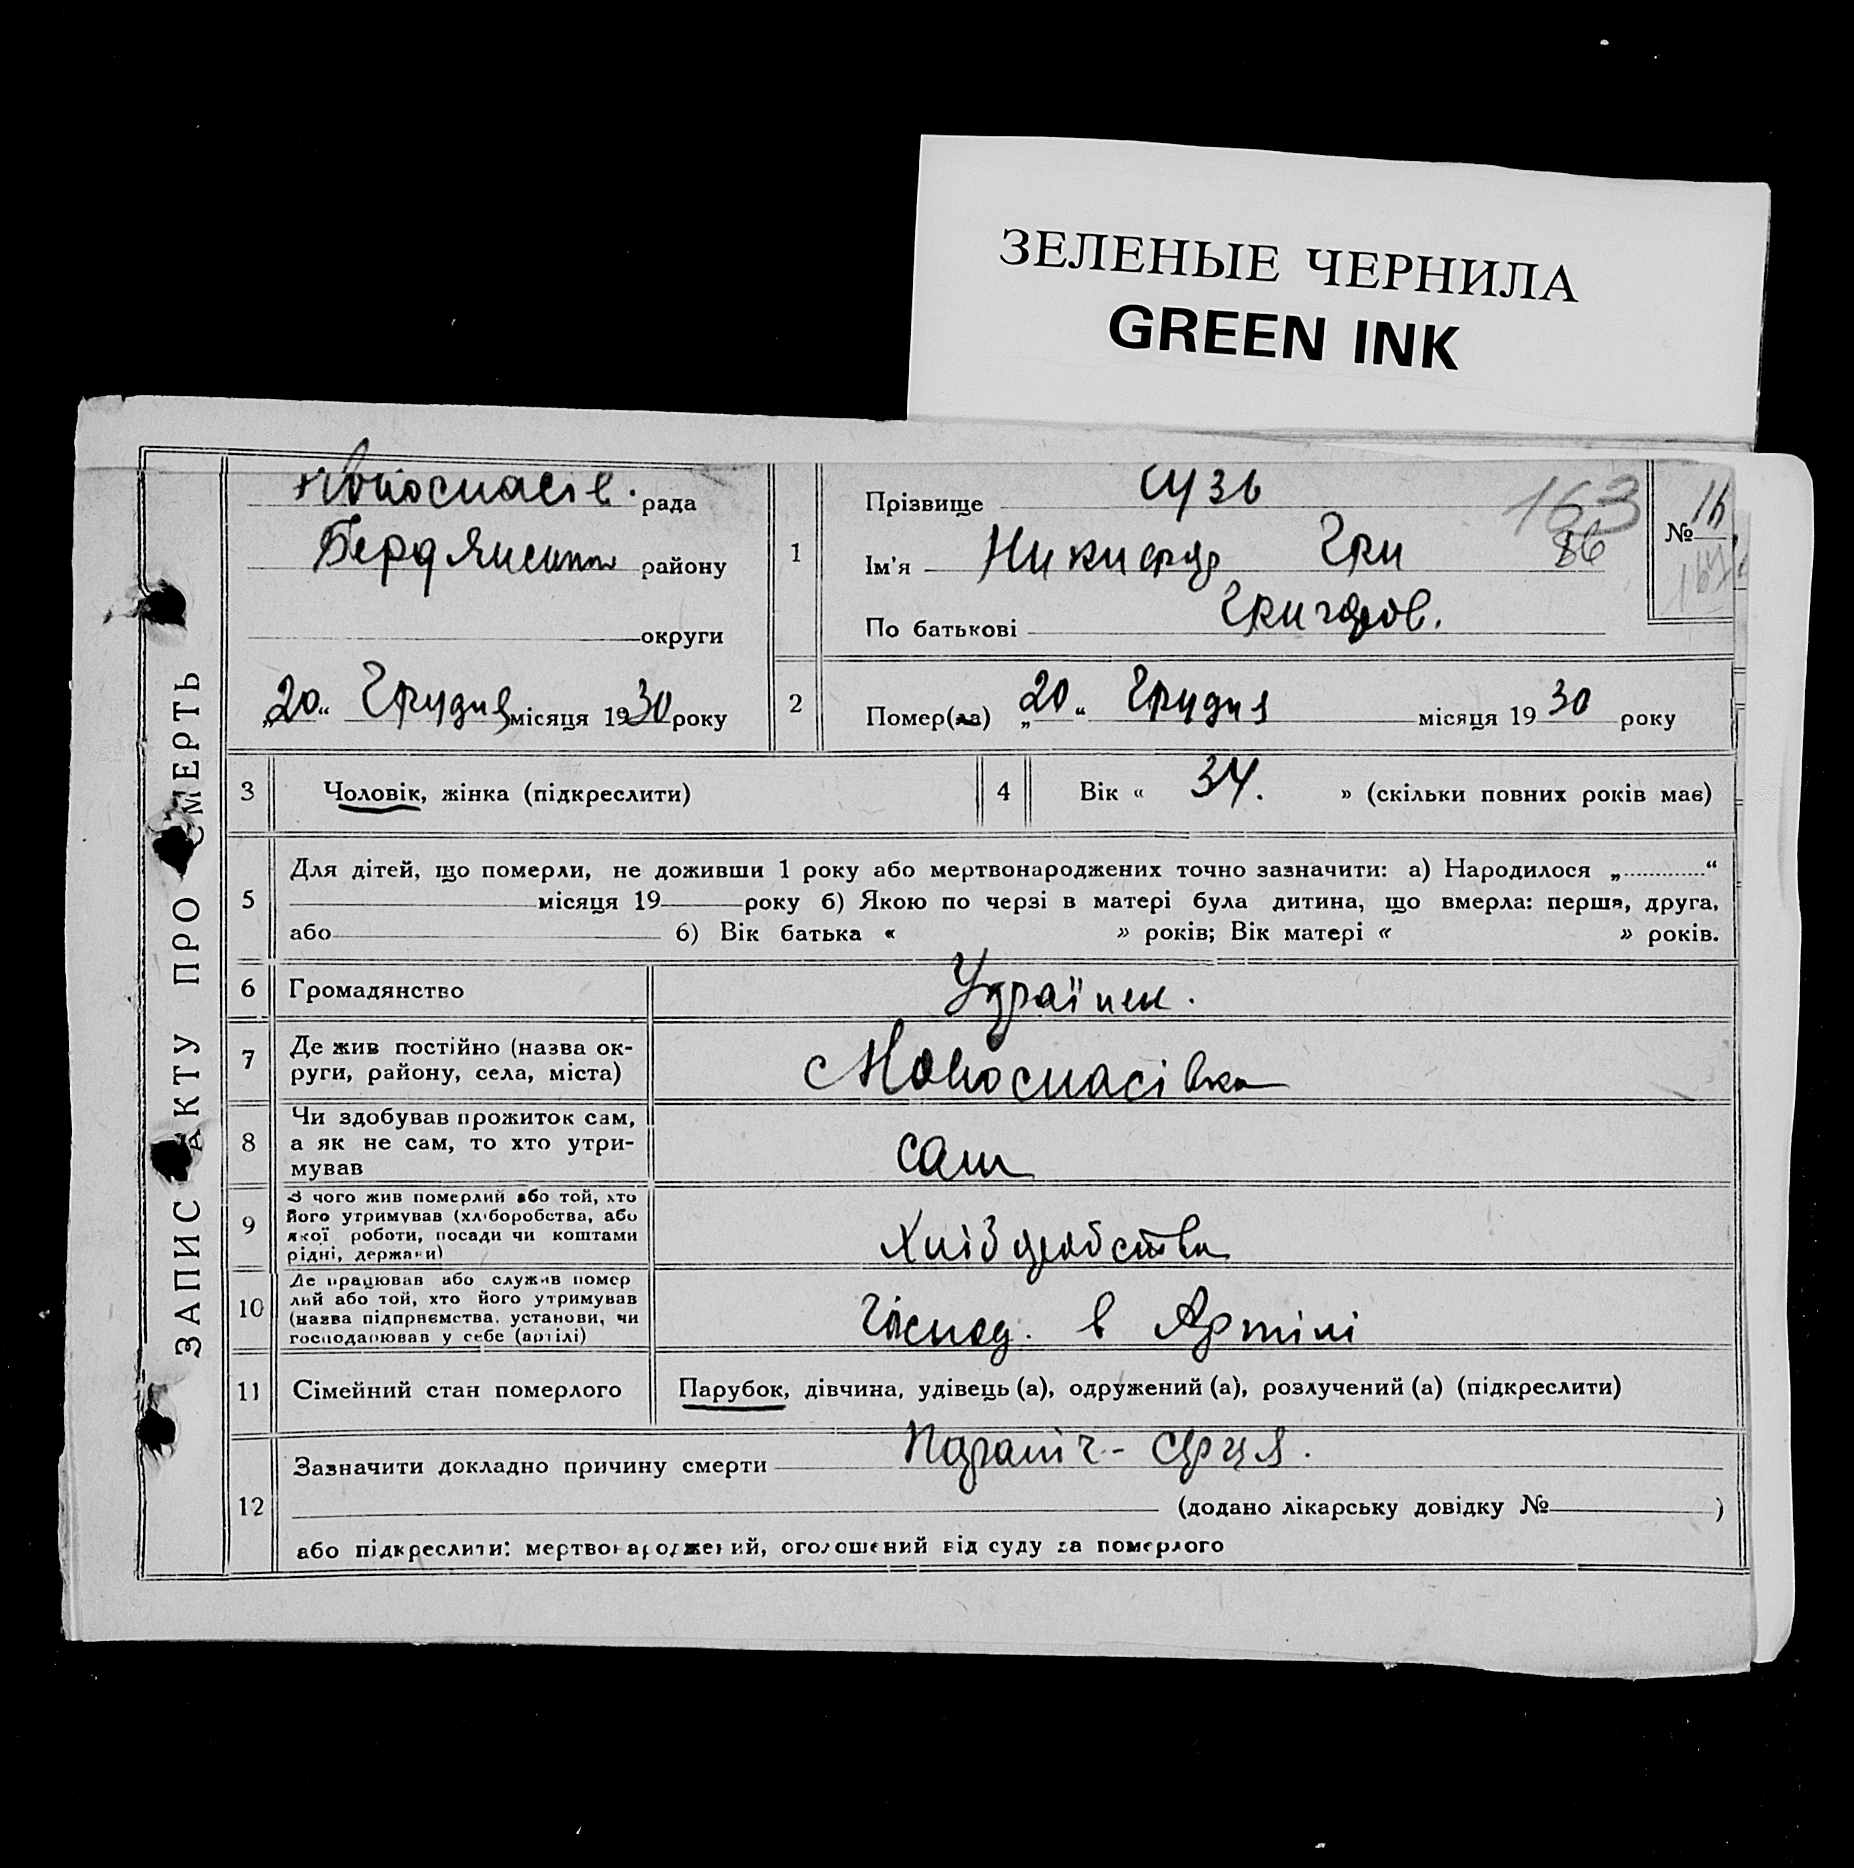 ЗЕЛЕНЫЕ ЧЕРНИЛА
GREEN INK
ЗАПИС АКТУ ПРО СМЕРТЬ
Новоспасів. рада
Бердянськ району
округи
„20“ Грудня місяця 1930 року
1
Прізвище Сузь
163
Ім'я Никифор Гри
86
По батькові Григоров.
№ 16
2
Помер(ла) „20“ Грудня місяця 1930 року
3 Чоловік, жінка (підкреслити)
4 Вік « 34. » (скільки повних років має)
5
Для дітей, що померли, не доживши 1 року або мертвонароджених точно зазначити: а) Народилося „ “
місяця 19 року б) Якою по черзі в матері була дитина, що вмерла: перша, друга,
або б) Вік батька « » років; Вік матері « » років.
6 Громадянство Українец.
7
Де жив постійно (назва ок-
руги, району, села, міста)
Новоспасівка
8
Чи здобував прожиток сам,
а як не сам, то хто утри-
мував
сам
9
З чого жив померлий або той, хто
його утримував (хліборобства, або
якої роботи, посади чи коштами
рідні, держави)
Хліборобства
10
Де працював або служив помер
лий або той, хто його утримував
(назва підприємства, установи, чи
господарював у себе (артілі)
Господ. в Артілі
11 Сімейний стан померлого Парубок, дівчина, удівець (а), одружений (а), розлучений (а) (підкреслити)
12
Зазначити докладно причину смерти Параліч - серця.
(додано лікарську довідку № )
або підкреслити: мертвонароджений, оголошений від суду за померлого